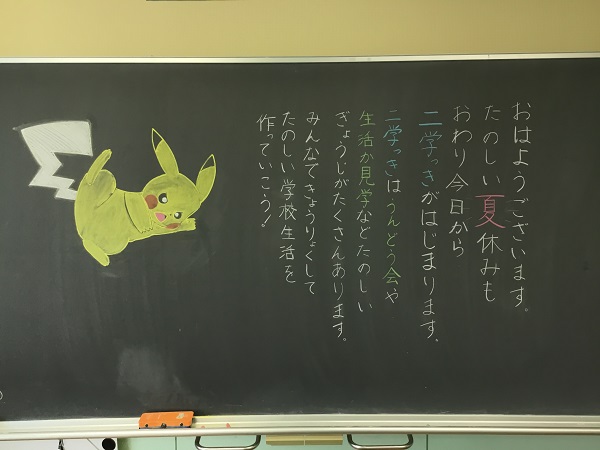 おはようございます。
たのしい夏休みも
おわり今日から
二学っきがはじまります。
二学っきはうんどう会や
生活か見学などたのしい
ぎょうじがたくさんあります。
みんなできょうりょくして
たのしい学校生活を
作っていこう!